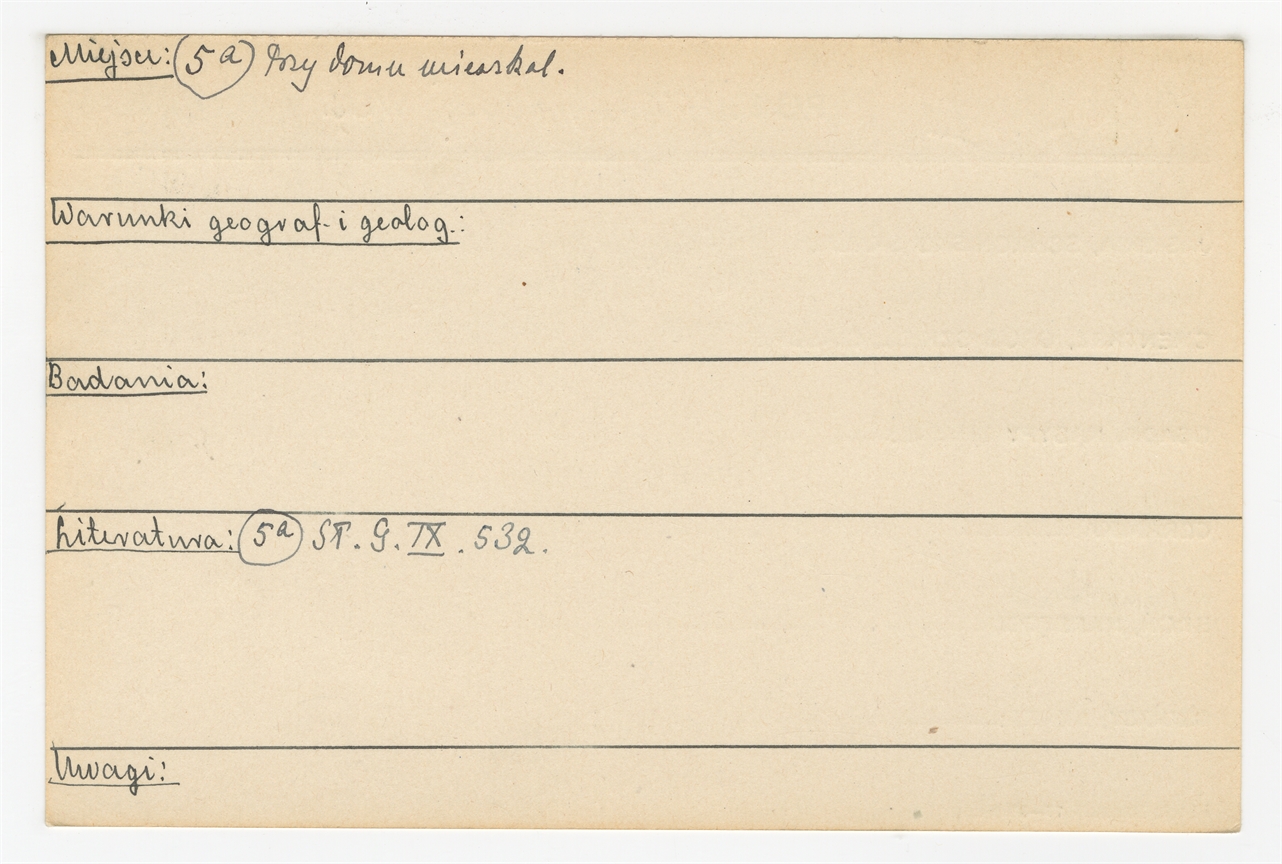 Miejsce: 5a przy domu mieszkal.
Warunki geograf. i geolog.:
Badania:
Literatura: 5a ST. G. IX. 532.
Uwagi: